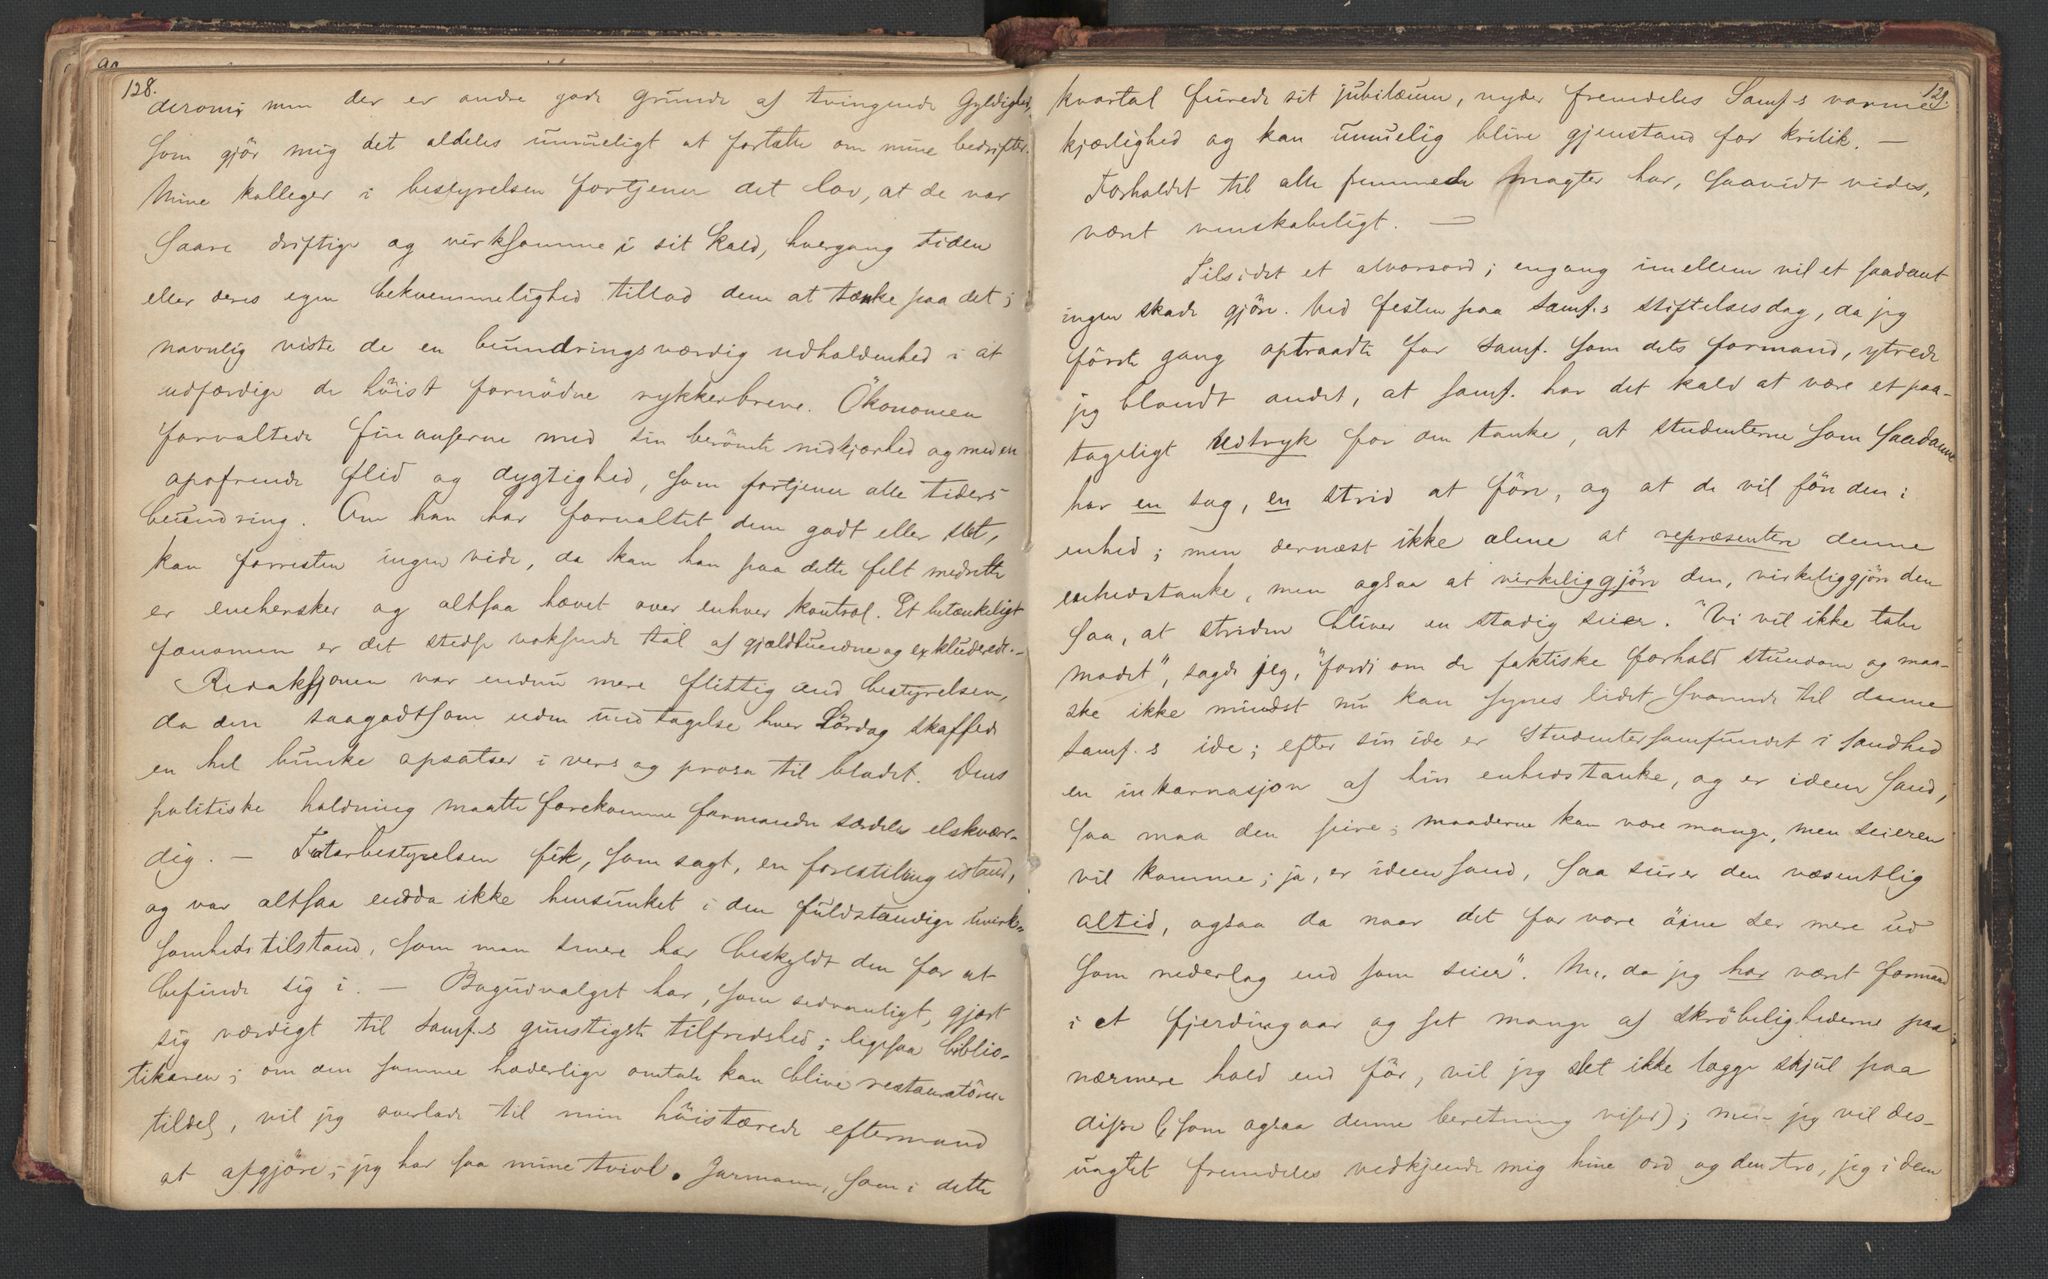 128.
derom; men der er andre gode Grunde af tvingende Gyldighed,
som gjör mig det aldeles umueligt at fortætte om mine bedrifter.
Mine kolleger i bestyrelsen fortjener det lov, at de var
saare driftige og virksomme i sit Kald, hvergang tiden
eller deres egen bekvemmelighed tillod dem at tænke paa det;
navnlig viste de en beundringsværdig udholdenhed i at
udfærdige de höist fornödne rykkerbreve. Ökonomen
forvaltede finanserne med sin berömte nidkjærhed og med en
opofrende flid og dygtighed, som fortjener alle tiders
beundring. Om han har forvaltet dem godt eller slet,
kan forresten ingen vide, da kan han paa dette felt medrette
er enehersker og altsaa hævet over enhver kontrol. Et betænkeligt
fænomen er det stedse voksende tal af gjældbundne og ekskluderede. –
Redaksjonen var endnu mere flittig end bestyrelsen,
da den saagodtsom uden undtagelse hver Lördag skaffede
en hel bunke opsatser i vers og prosa til bladet. Dens
politiske holdning maatte forekomme formanden særdeles elskvær-
dig. – Teaterbestyrelsen fik, som sagt, en forestilling istand,
og var altsaa endda ikke hensunket i den fuldstændige uvirk-
somhedstilstand, som man senere har beskyldt den for at
befinde sig i. – Bogudvalget har, som sedvanligt, gjort
sig værdigt til Samf.s gunstigste tilfredshed; ligesaa biblio-
tikaren; om den samme hæderlige omtale kan blive restauratören
tildel, vil jeg overlade til min höistærede eftermand
at afgjöre; jeg har saa mine tvivl. Jarmann, som i dette
129.
kvartal feirede sit jubilæum, nyder fremdeles Samf.s varme
kjærlighed og kan umuelig blive gjenstand for kritik. –
Forholdet til alle fremmede magter har, saavidt vides,
været venskabeligt. –
Tilsidst et alvorsord; engang imellem vil et saadant
ingen skade gjöre. Ved festen paa Samf.s stiftelsesdag, da jeg
förste gang optraadte for Samf. som dets formand, ytrede
jeg blandt andet, at Samf. har det kald at være et paa-
tageligt udtryk for den tanke, at studenterne som saadanne
har en sag, en strid at före, og at de vil före den i
enhed; men dernæst ikke alene at repræsentere denne
enhedstanke, men ogsaa at virkeliggjöre den, virkeliggjöre den
saa, at striden bliver en stadig seier. "Vi vil ikke tabe
modet", sagde jeg, "fordi om de faktiske forhold stundom og maa-
ske ikke mindst nu kan synes lidet svarende til denne
Samf.s ide; efter sin ide er Studentersamfundet i sandhed
en inkarnasjon af hin enhedstanke, og er ideen sand,
saa maa den seire; maaderne kan være mange, men seieren
vil komme; ja, er ideen sand, saa seirer den væsentlig
altid, ogsaa da naar det for vore öine ser mere ud
som nederlag end som seier". Nu, da jeg har været formand
i et fjerdingaar og set mange af skröbelighederne paa
nærmere hold end för, vil jeg slet ikke lægge skjul paa
disse (som ogsaa denne beretning viser); men jeg vil des-
uagtet fremdeles vedkjende mig hine ord og den tro, jeg i dem